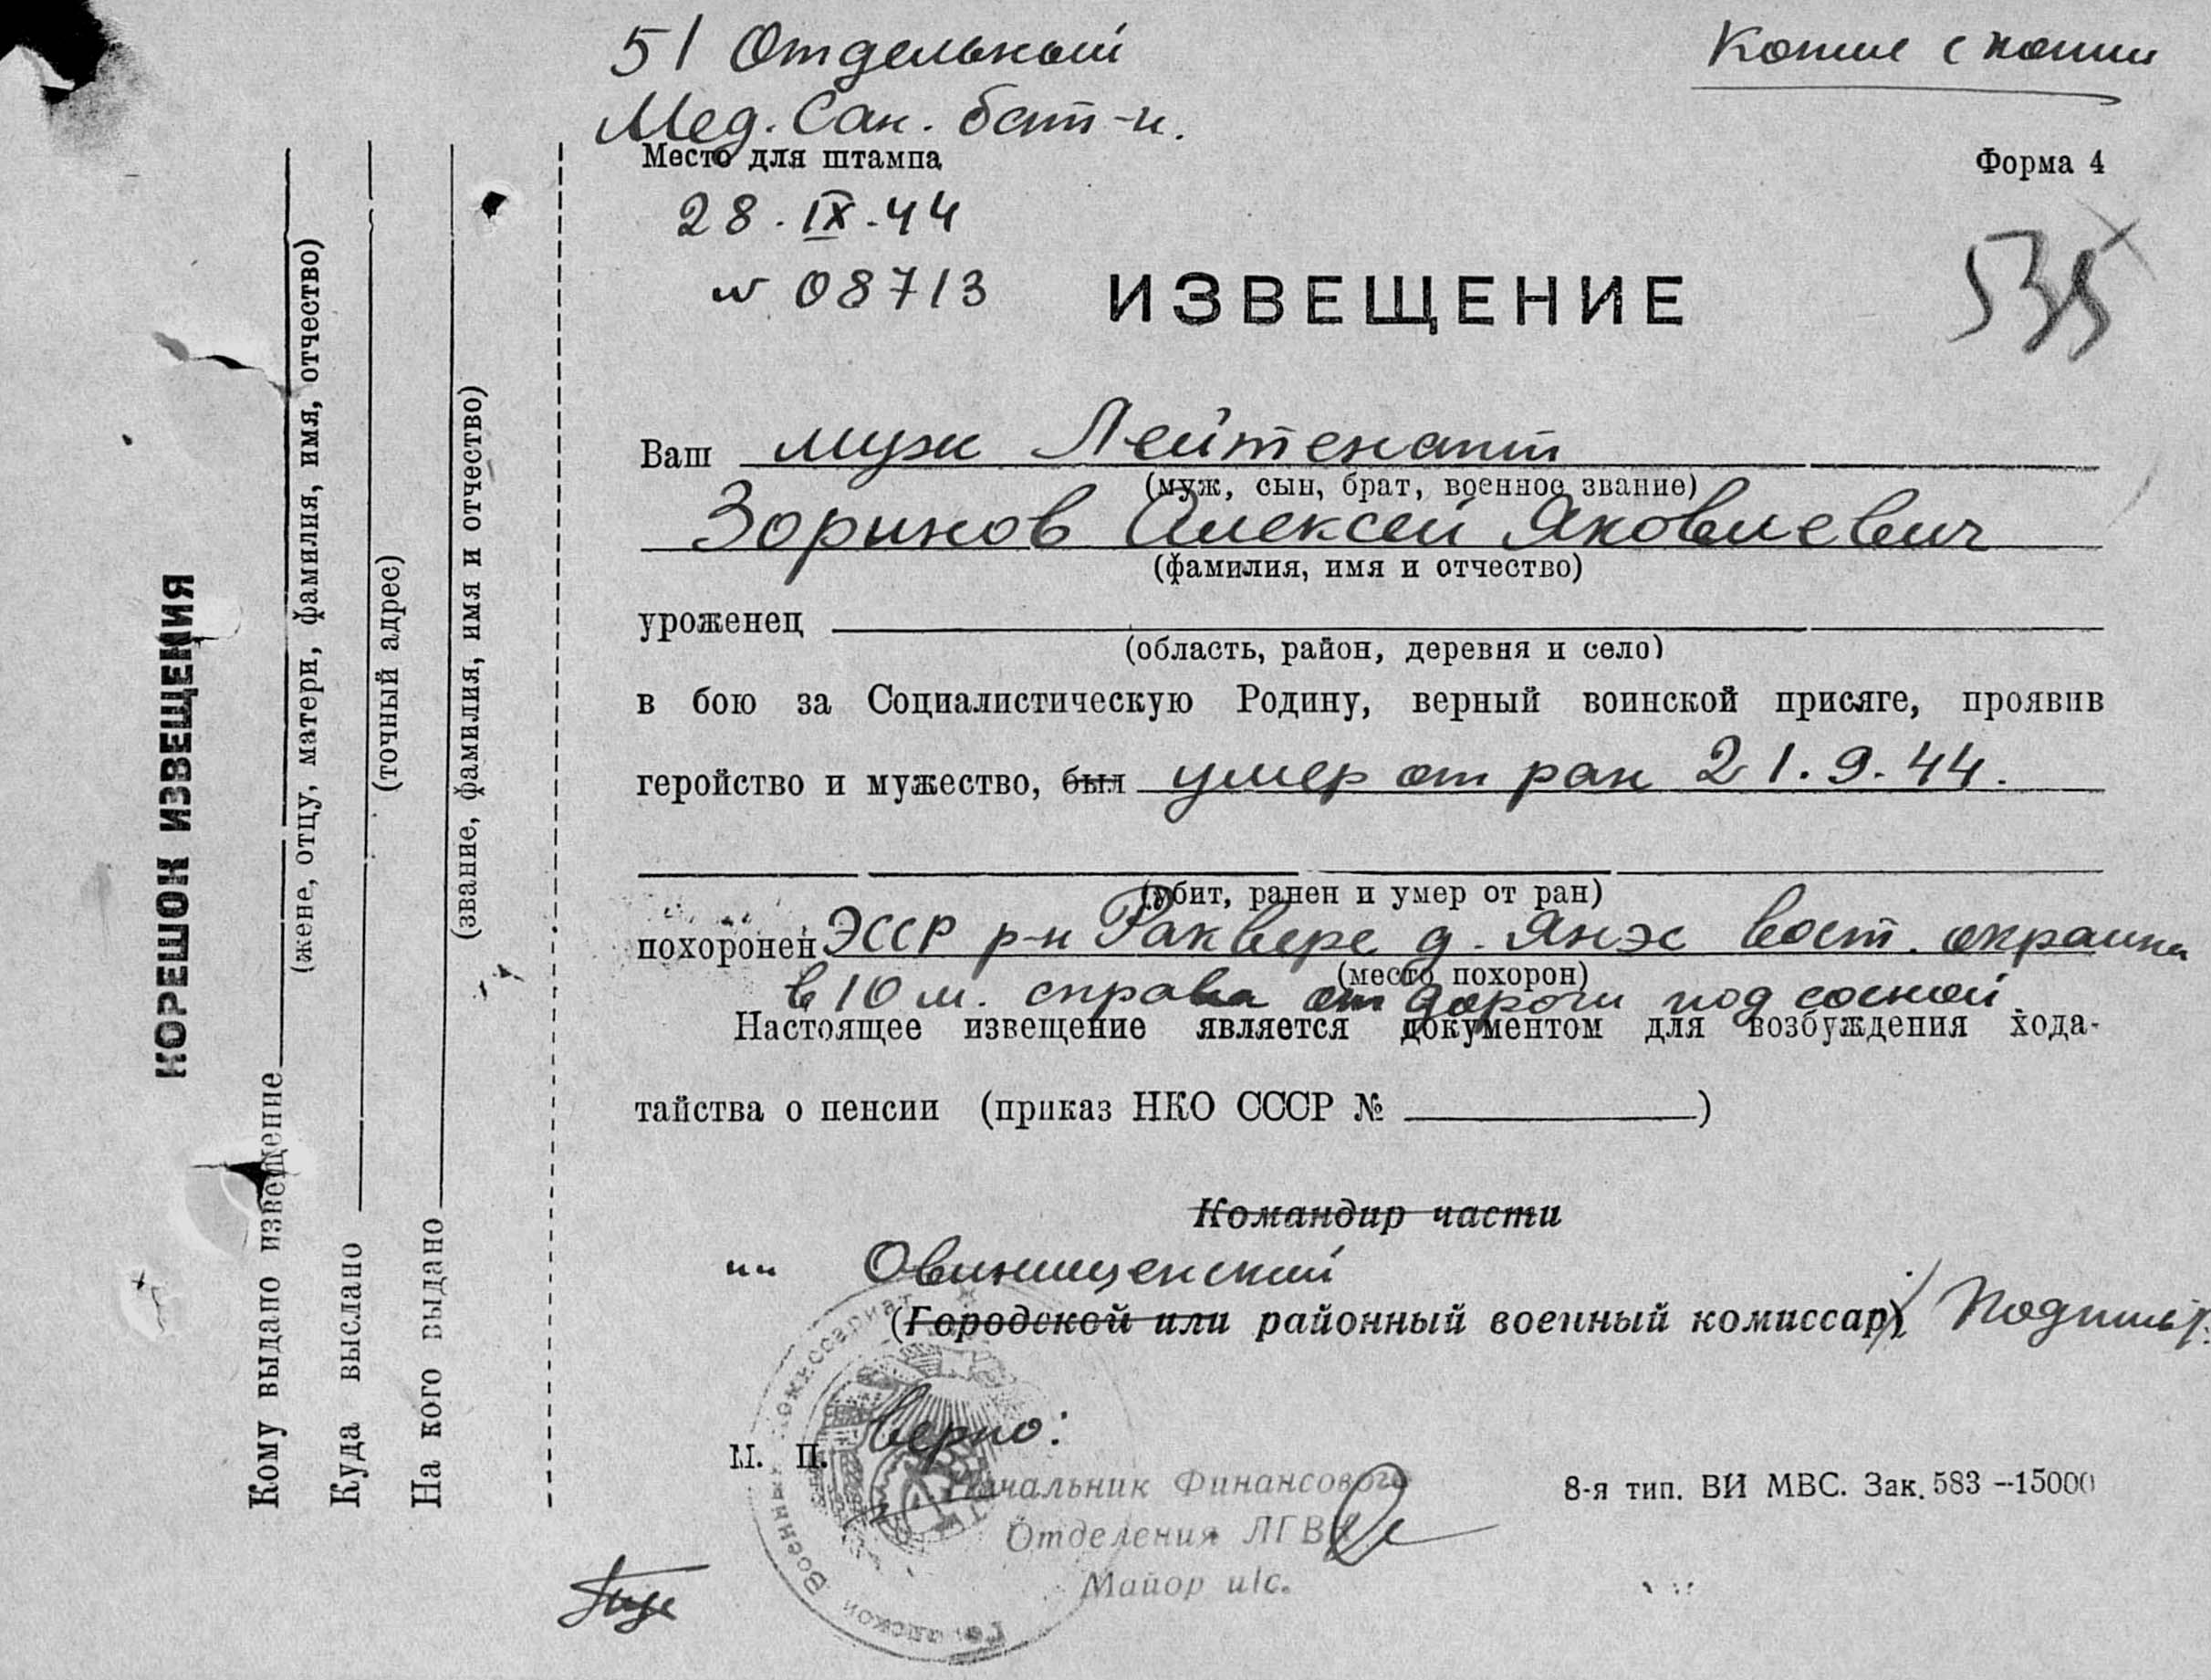 51 Отдельный
Копия с копии
Мед. Сан. бат-н.
Место для штампа
Форма 4
28.IX.44
N 08713
535
ИЗВЕЩЕНИЕ
Ваш муж Лейтенант
(муж, сын, брат, военное звание)
Зоринов Алексей Яковлевич
(фамилия, имя и отчество)
уроженец
(область, район, деревня и село)
в бою за Социалистическую Родину, верный воинской присяге, проявив
геройство и мужество, был умер от ран 21.9.44.
(убит, ранен и умер от ран)
похоронен ЭССР р-н Раквере д. Янэс вост. окраина
(место похорон)
в 10 м. справа от дороги под сосной
Настоящее извещение является документом для возбуждения хода-
тайства о пенсии (приказ НКО СССР № )
Командир части
"" Овинищенский
(Городской или районный военный комиссар) / Подпись /
верно:
М. П.
Начальник Финансового
Отделения ЛГВК
Майор и/с.
8-я тип. ВИ МВС. Зак. 583—15000
Городской Военный комиссариат
КОРЕШОК ИЗВЕЩЕНИЯ
Кому выдано извещение
(жене, отцу, матери, фамилия, имя, отчество)
Куда выслано
(точный адрес)
На кого выдано
(звание, фамилия, имя и отчество)